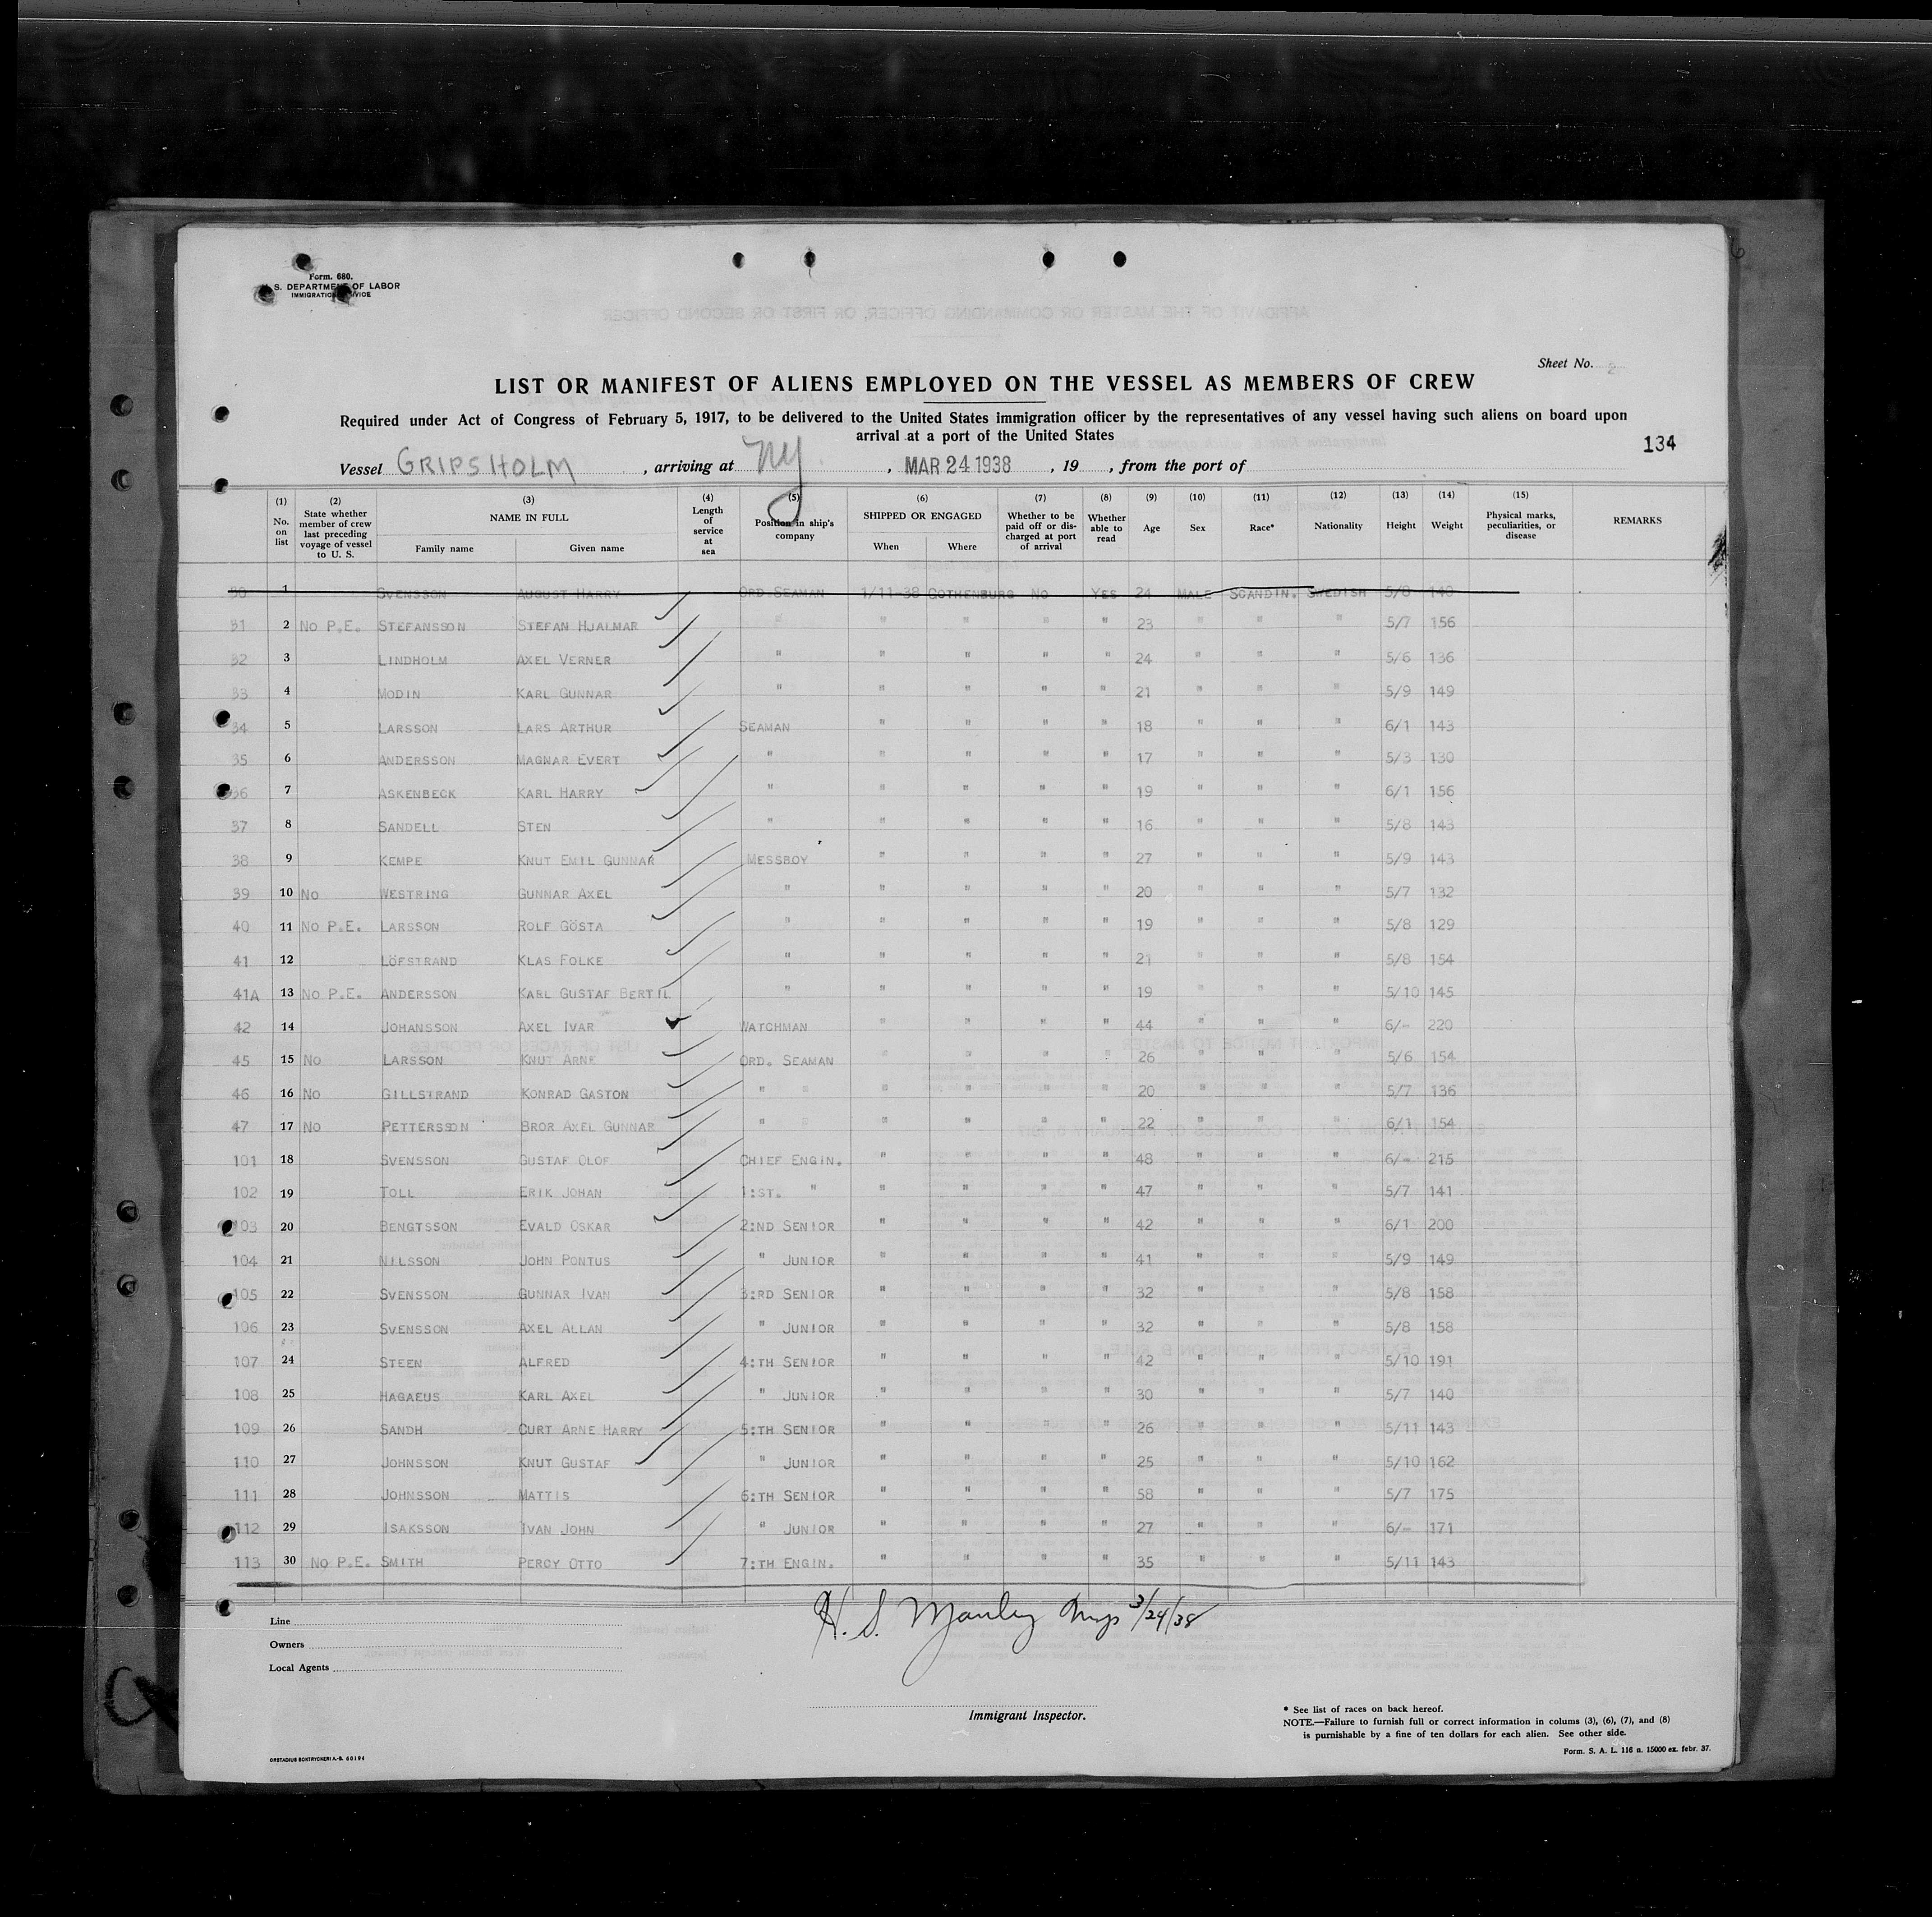 Form. 680.
S. DEPARTMENT OF LABOR
IMMIGRATION SERVICE
Sheet No. 2
LIST OR MANIFEST OF ALIENS EMPLOYED ON THE VESSEL AS MEMBERS OF CREW
Required under Act of Congress of February 5, 1917, to be delivered to the United States immigration officer by the representatives of any vessel having such aliens on board upon
arrival at a port of the United States
134
Vessel GRIPSHOLM, arriving at NY, MAR 24 1938, 19 , from the port of
(1) No. on list (2) State whether member of crew last preceding voyage of vessel to U. S. (3) NAME IN FULL Family name Given name (4) Length of service at sea (5) Position in ship's company (6) SHIPPED OR ENGAGED When Where (7) Whether to be paid off or discharged at port of arrival (8) Whether able to read (9) Age (10) Sex (11) Race* (12) Nationality (13) Height (14) Weight (15) Physical marks, peculiarities, or disease REMARKS
30 1 SVENSSON AUGUST HARRY ORD.SEAMAN 1/11-38 GOTHENBURG NO YES 24 MALE SCANDIN. SWEDISH 5/8 140
31 2 NO P.E. STEFANSSON STEFAN HJALMAR " " " " " 23 " " " 5/7 156
32 3 LINDHOLM AXEL VERNER " " " " " 24 " " " 5/6 136
33 4 MODIN KARL GUNNAR " " " " " 21 " " " 5/9 149
34 5 LARSSON LARS ARTHUR SEAMAN " " " " 18 " " " 6/1 143
35 6 ANDERSSON MAGNAR EVERT " " " " " 17 " " " 5/3 130
36 7 ASKENBECK KARL HARRY " " " " " 19 " " " 6/1 156
37 8 SANDELL STEN " " " " " 16 " " " 5/8 143
38 9 KEMPE KNUT EMIL GUNNAR MESSBOY " " " " 27 " " " 5/9 143
39 10 NO WESTRING GUNNAR AXEL " " " " " 20 " " " 5/7 132
40 11 NO P.E. LARSSON ROLF GÖSTA " " " " " 19 " " " 5/8 129
41 12 LÖFSTRAND KLAS FOLKE " " " " " 21 " " " 5/8 154
41A 13 NO P.E. ANDERSSON KARL GUSTAF BERTIL " " " " " 19 " " " 5/10 145
42 14 JOHANSSON AXEL IVAR WATCHMAN " " " " 44 " " " 6/- 220
45 15 NO LARSSON KNUT ARNE ORD. SEAMAN " " " " 26 " " " 5/6 154
46 16 NO GILLSTRAND KONRAD GASTON " " " " " " 20 " " " 5/7 136
47 17 NO PETTERSSON BROR AXEL GUNNAR " " " " " " 22 " " " 6/1 154
101 18 SVENSSON GUSTAF OLOF CHIEF ENGIN. " " " " 48 " " " 6/- 215
102 19 TOLL ERIK JOHAN 1:ST. " " " " " 47 " " " 5/7 141
103 20 BENGTSSON EVALD OSKAR 2:ND SENIOR " " " " 42 " " " 6/1 200
104 21 NILSSON JOHN PONTUS " JUNIOR " " " " 41 " " " 5/9 149
105 22 SVENSSON GUNNAR IVAN 3:RD SENIOR " " " " 32 " " " 5/8 158
106 23 SVENSSON AXEL ALLAN " JUNIOR " " " " 32 " " " 5/8 158
107 24 STEEN ALFRED 4:TH SENIOR " " " " 42 " " " 5/10 191
108 25 HAGAEUS KARL AXEL " JUNIOR " " " " 30 " " " 5/7 140
109 26 SANDH CURT ARNE HARRY 5:TH SENIOR " " " " 26 " " " 5/11 143
110 27 JOHNSSON KNUT GUSTAF " JUNIOR " " " " 25 " " " 5/10 162
111 28 JOHNSSON MATTIS 6:TH SENIOR " " " " 58 " " " 5/7 175
112 29 ISAKSSON IVAN JOHN " JUNIOR " " " " 27 " " " 6/- 171
113 30 NO P.E. SMITH PERCY OTTO 7:TH ENGIN. " " " " 35 " " " 5/11 143
Line
Owners
Local Agents
H. S. Manley Insp 3/24/38
Immigrant Inspector.
* See list of races on back hereof.
NOTE.—Failure to furnish full or correct information in colums (3), (6), (7), and (8)
is punishable by a fine of ten dollars for each alien. See other side.
ORSTADIUS BOKTRYCKERI A.-B. 60194
Form. S. A. L. 116 a. 15000 ex. febr. 37.